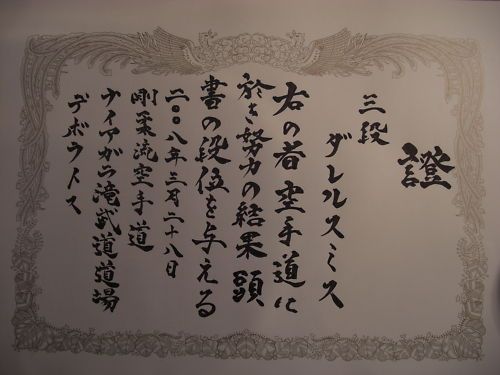 證
三段
ダレルスミス
右の者空手道に
於き努力の結果頭
書の段位を与える
二〇〇八年三月二十八日
剛柔流空手道
ナイアガラ滝武道道場
デボウイス